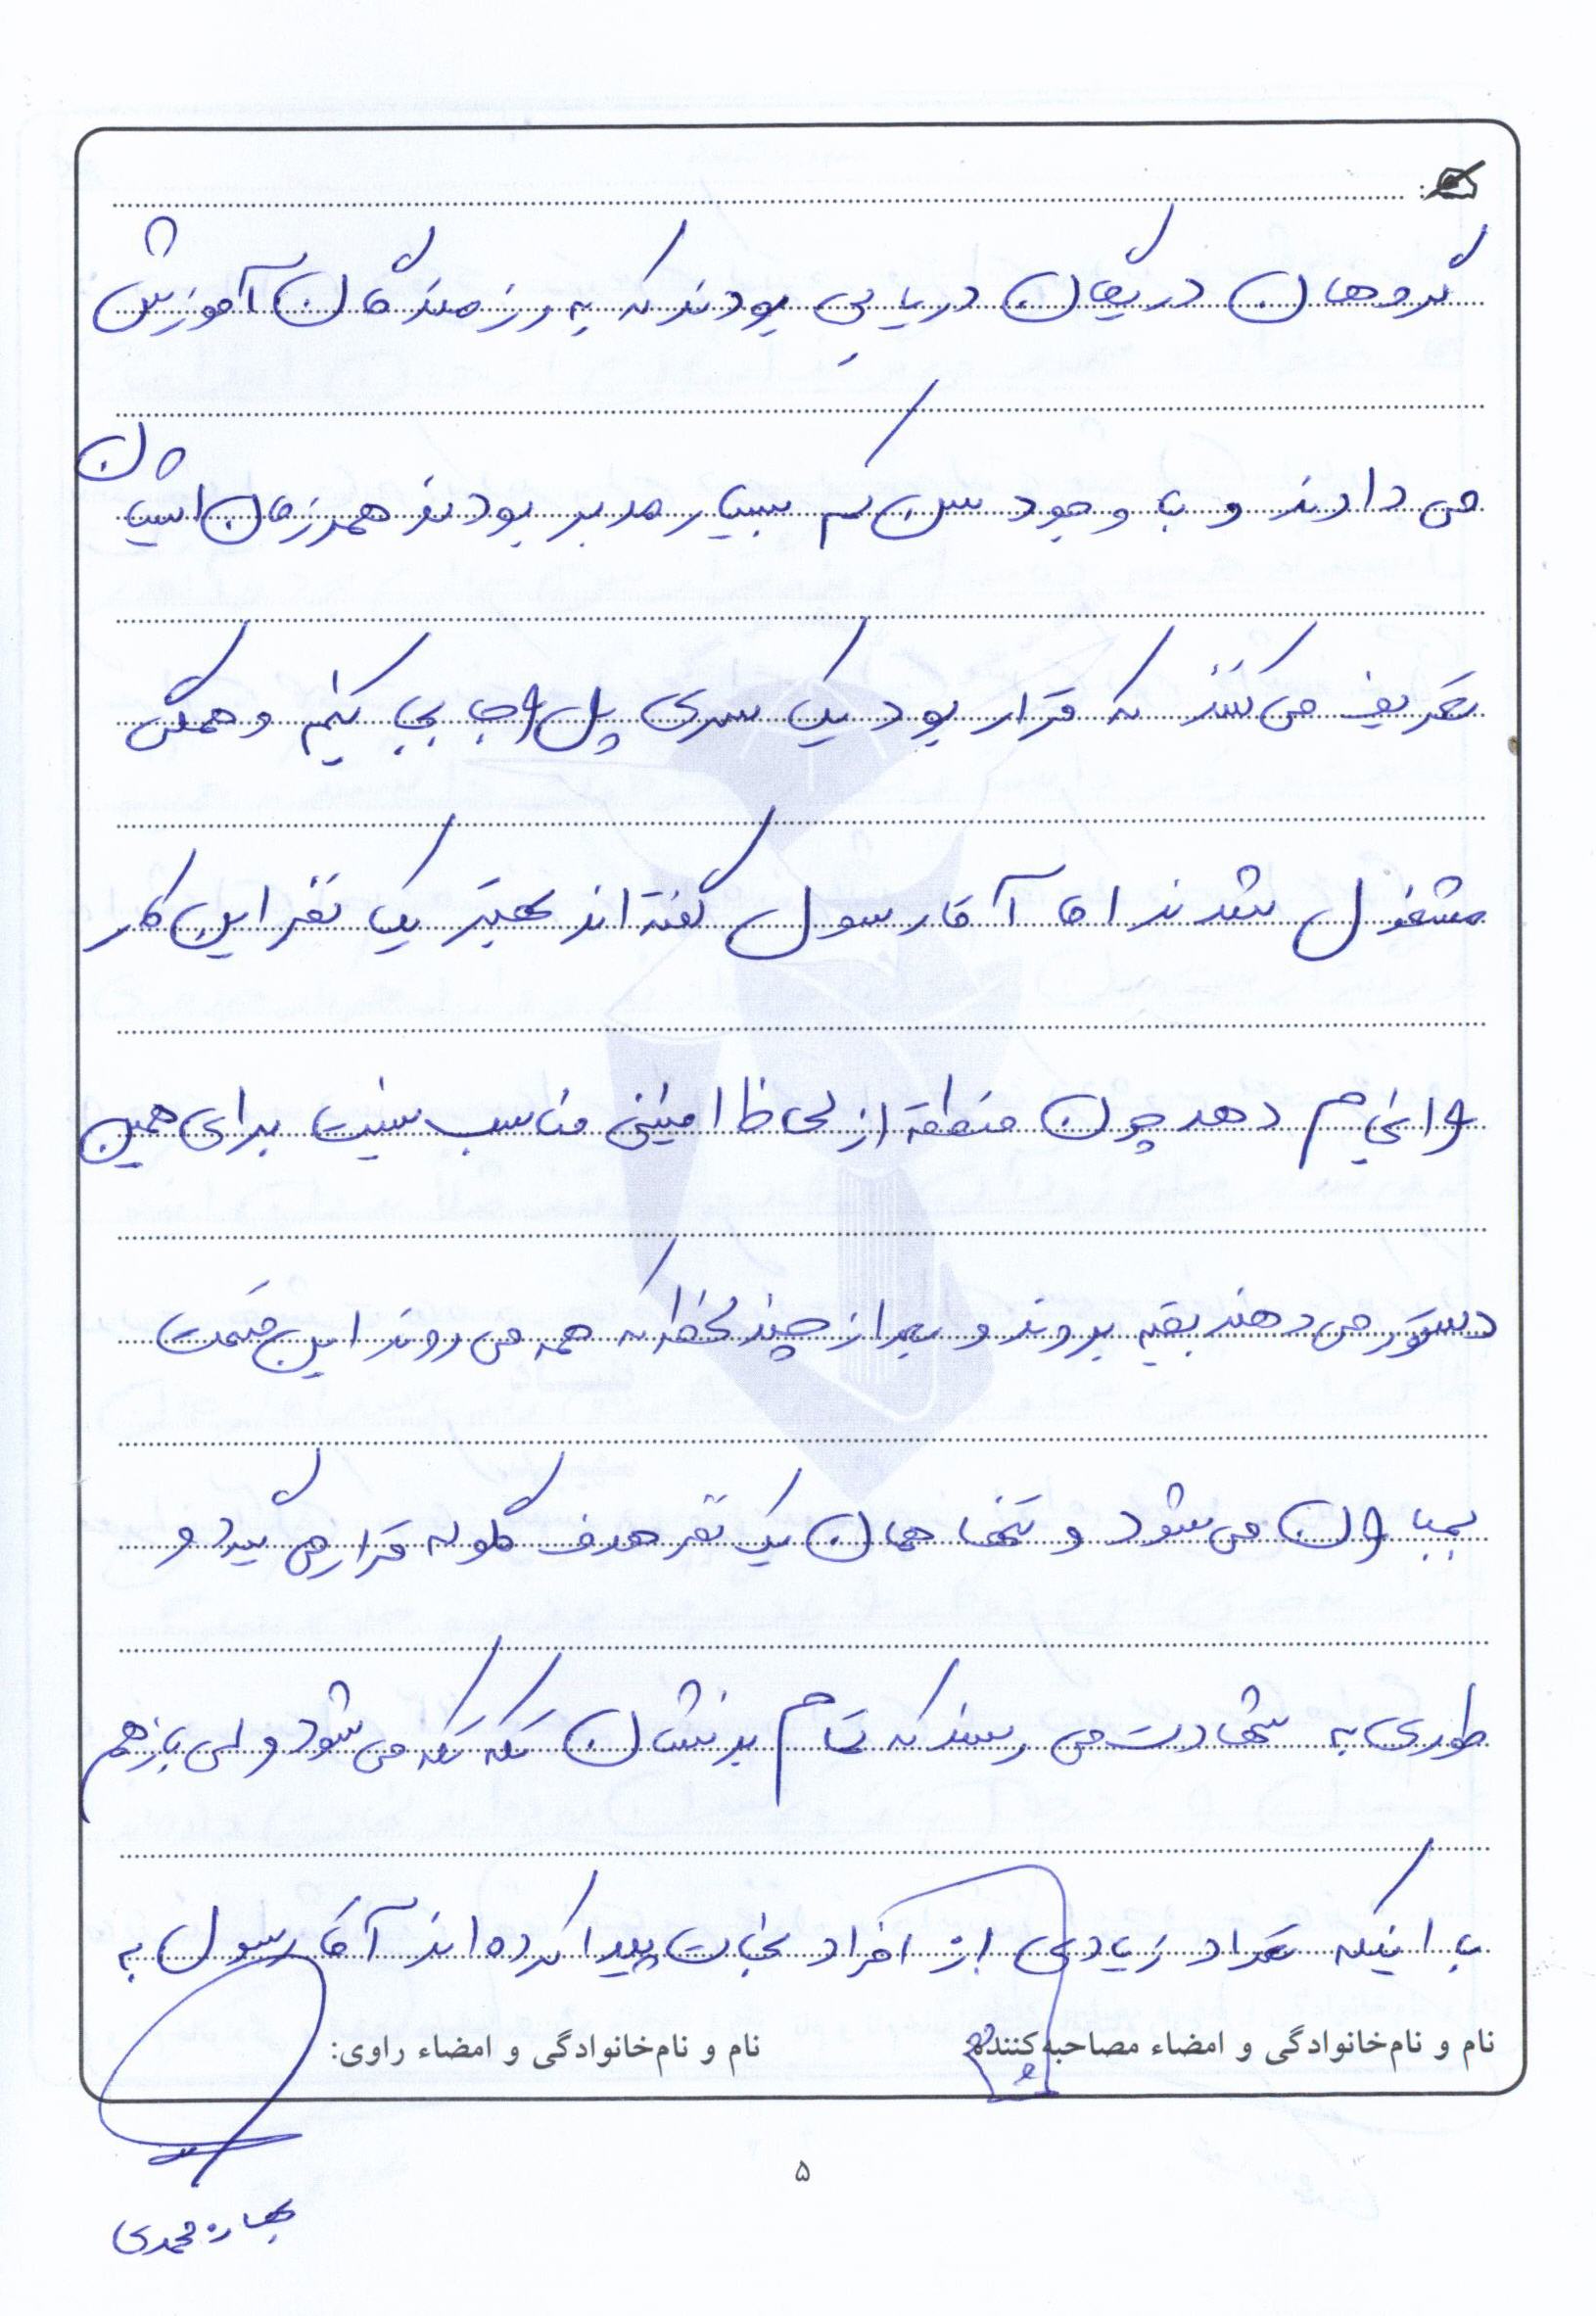 گروهان در یگان دریایی بودند که به رزمندگان آموزش
می دادند و با وجود سن کم بسیار مدبر بودند همرزمان ایشان
تعریف می کنند که قرار بود یک سری پل را جا بجا کنیم و همگی
مشغول شدند اما آقا رسول گفته اند بهتر یک نفر این کار
را انجام دهد چون منطقه از لحاظ امنیتی مناسب نیست برای همین
دستور می دهند بقیه بروند و بعد از چند لحظه که همه می روند این قسمت
بمباران می شود و تنها همان یک نفر هدف گلوله قرار می گیرد و
طوری به شهادت می رسند که تمام بدنشان تکه تکه می شود ولی باز هم
با اینکه تعداد زیادی از افراد نجات پیدا کرده اند آقا رسول به
نام و نام‌خانوادگی و امضاء مصاحبه‌کننده:
نام و نام‌خانوادگی و امضاء راوی:
۵
بهاره محمدی